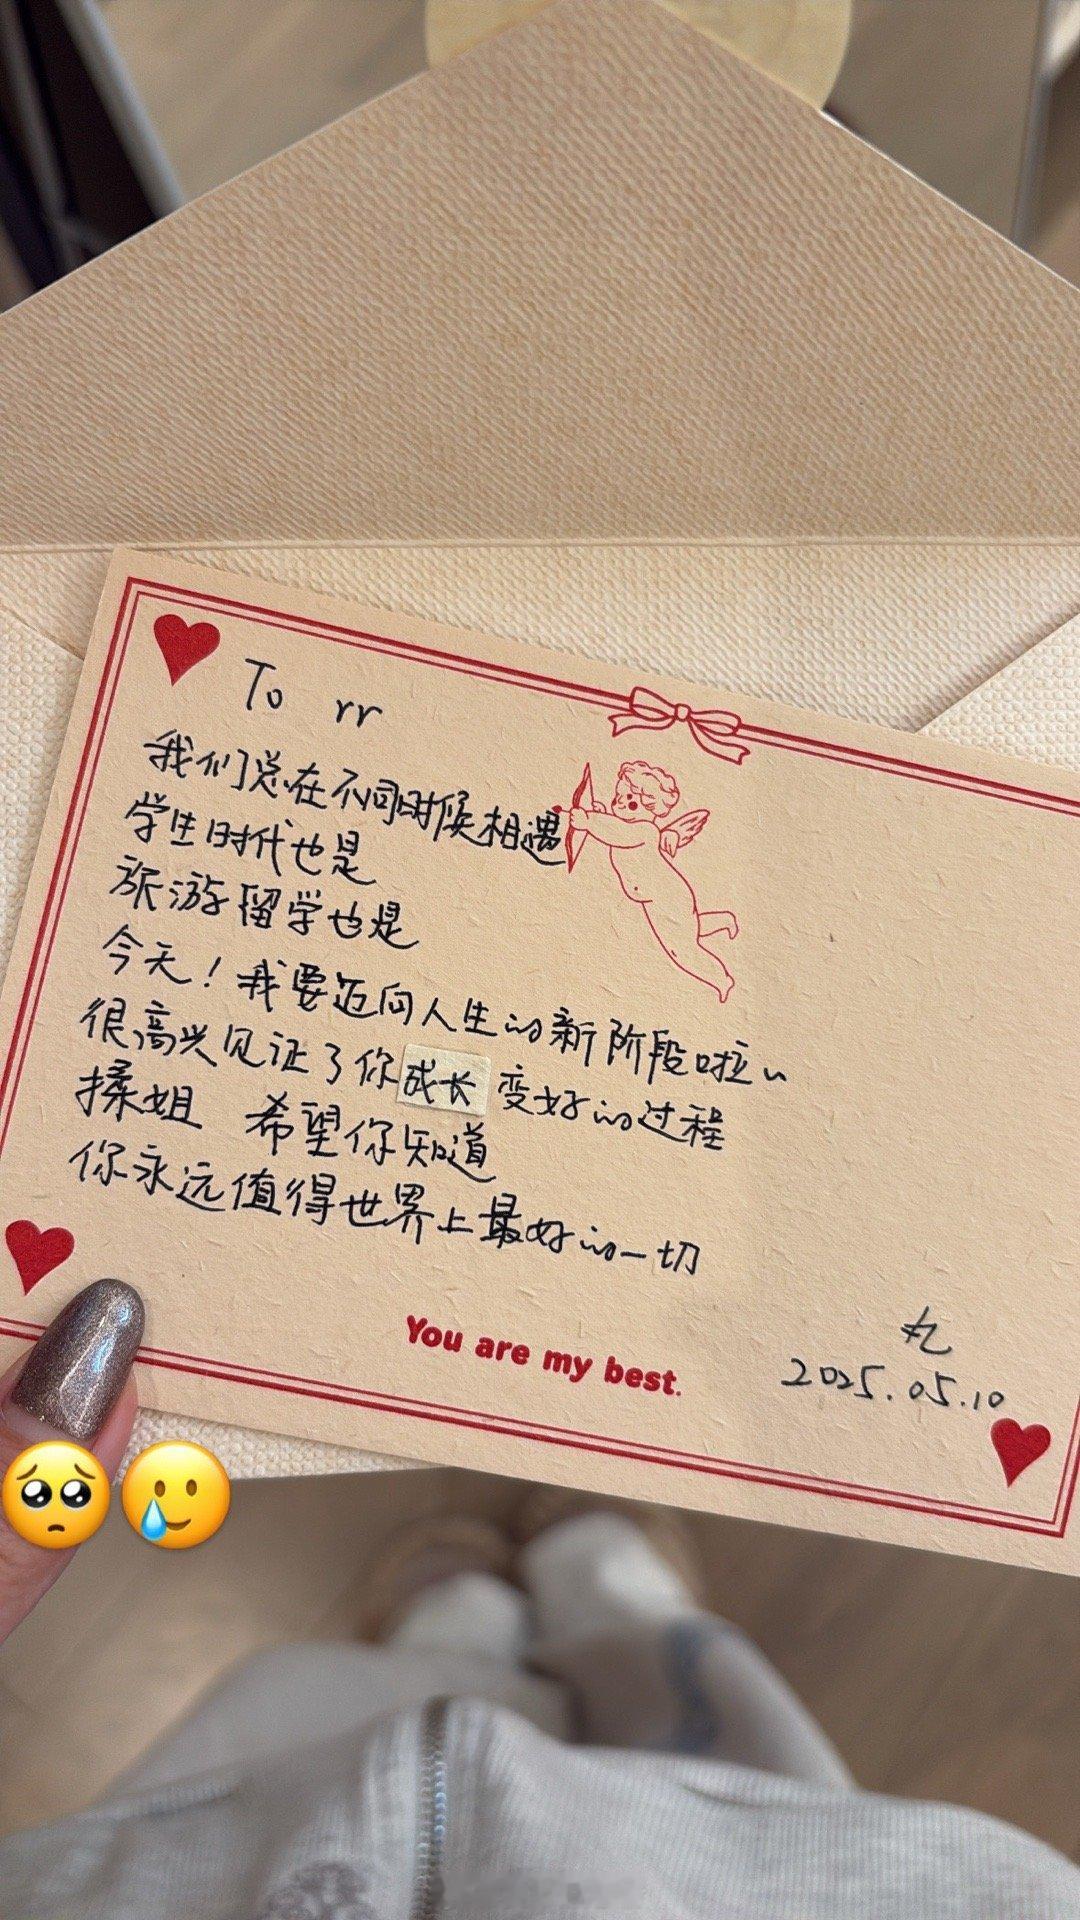 To rr
我们总在不同时候相遇
学生时代也是
旅游留学也是
今天！我要迈向人生的新阶段啦~
很高兴见证了你成长变好的过程
揉姐 希望你知道
你永远值得世界上最好的一切
You are my best.
丸
2025.05.10